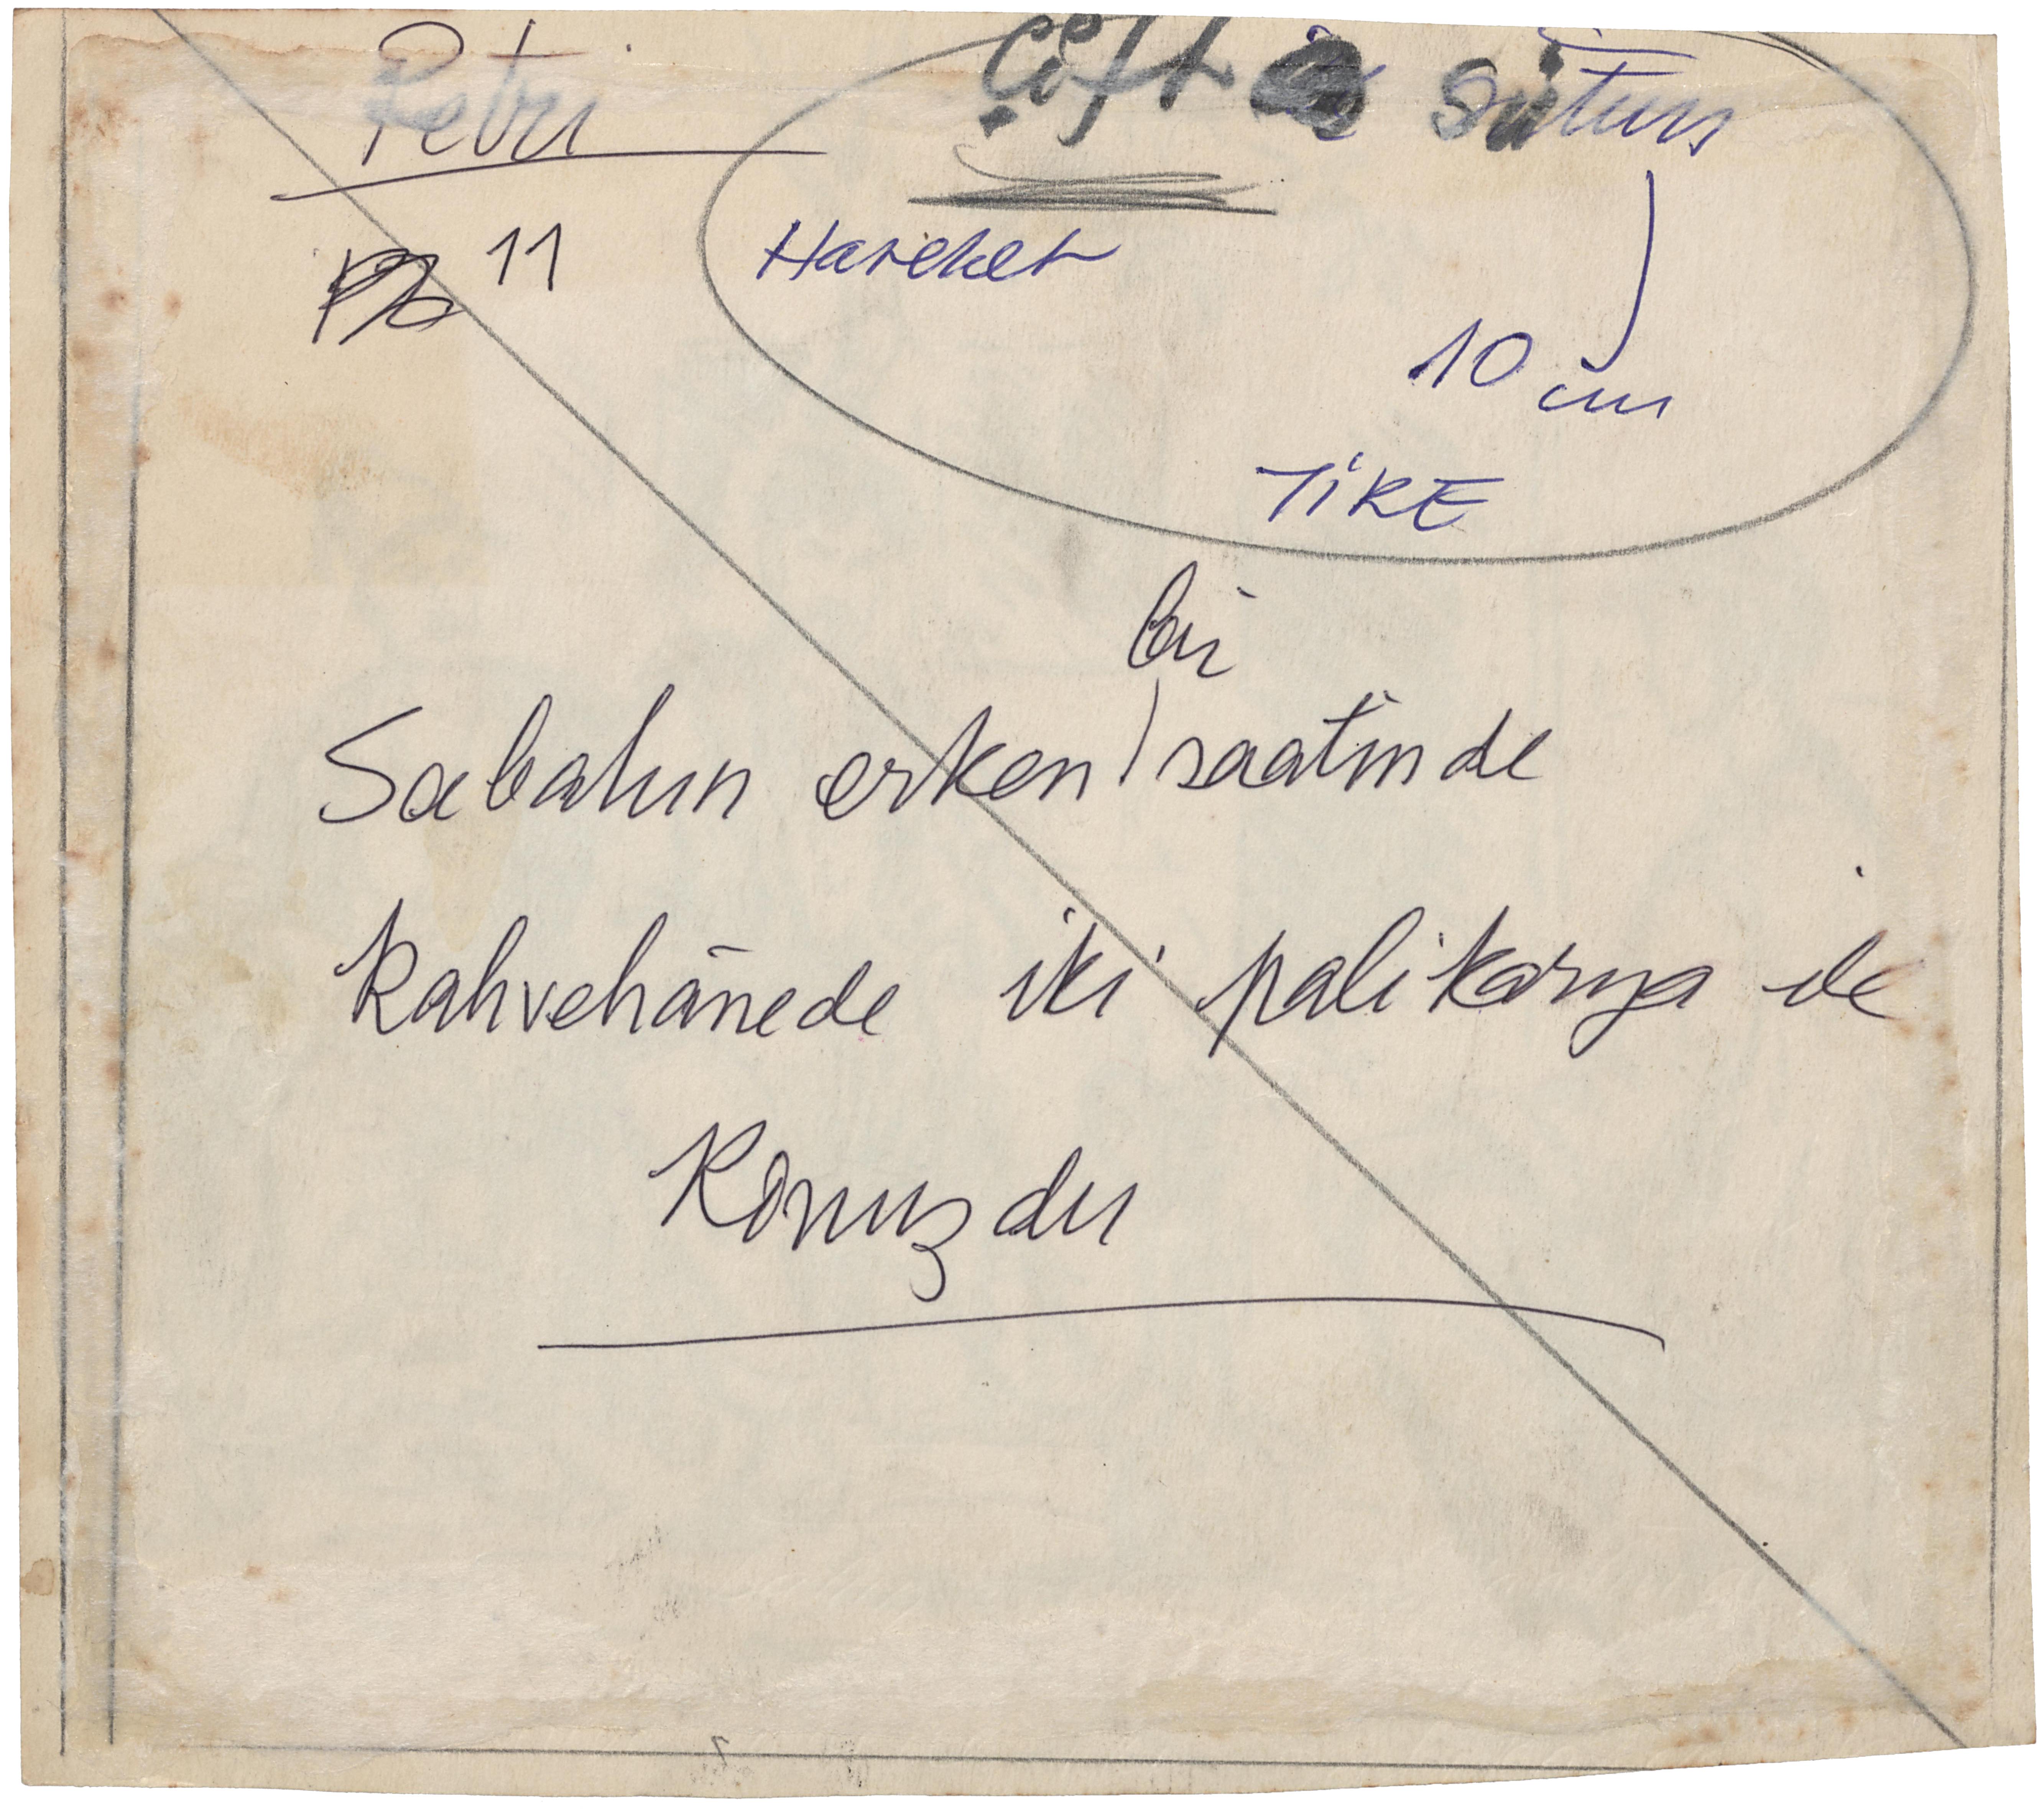 Petri
Çift sütun
11
Hareket
10 cm
TİRE
bir
Sabahın erken saatinde
Kahvehânede iki palikarya ile
Konuşdu